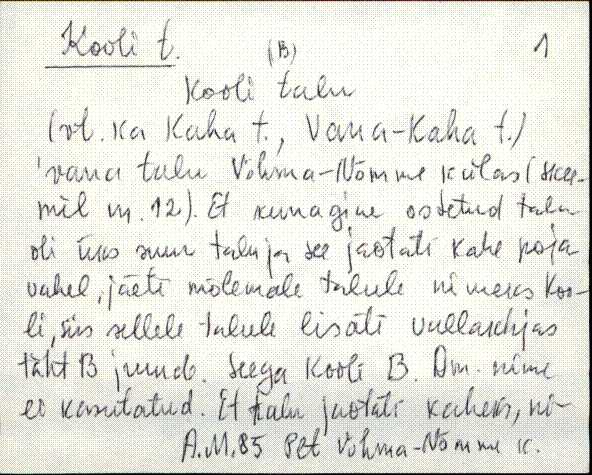 Kooli t. (B) 1
Kooli talu
(vt. ka Kaha t., Vana-Kaha t.)
'vana talu Võhma-Nõmme külas (skee-
mil nr. 12). Et kunagine ostetud talu
oli üks suur talu ja see jaotati kahe poja
vahel, jäeti mõlemale talule nimeks Koo-
li, siis sellele talule lisati vallakirjas
täht B juurde. Seega Kooli B. Om. nime
ei kasutatud. Et talu jaotati kaheks, ni-
A.M.85 Pet Võhma-Nõmme k.